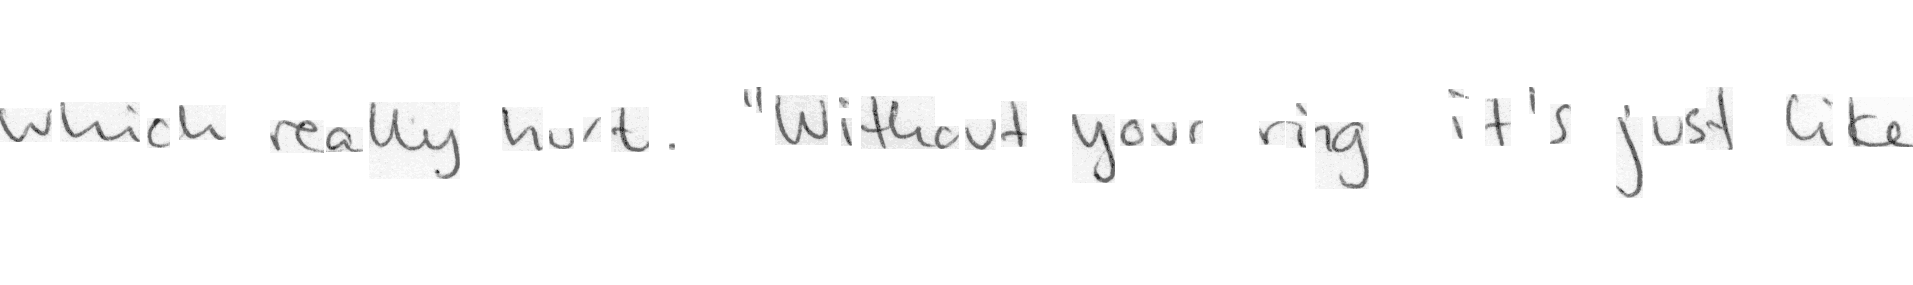 which really hurt. "Without your ring it's just like